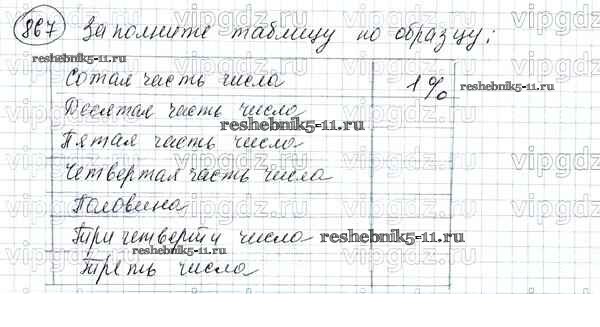 867 Заполните таблицу по образцу:
Сотая часть числа 1%
Десятая часть число
Пятая часть числа
Четвертая часть числа
Половина
Три четверти число
Треть числа
vipgdz.ru
reshebnik5-11.ru
reshebnik5-11.ru
reshebnik5-11.ru
reshebnik5-11.ru
reshebnik5-11.ru